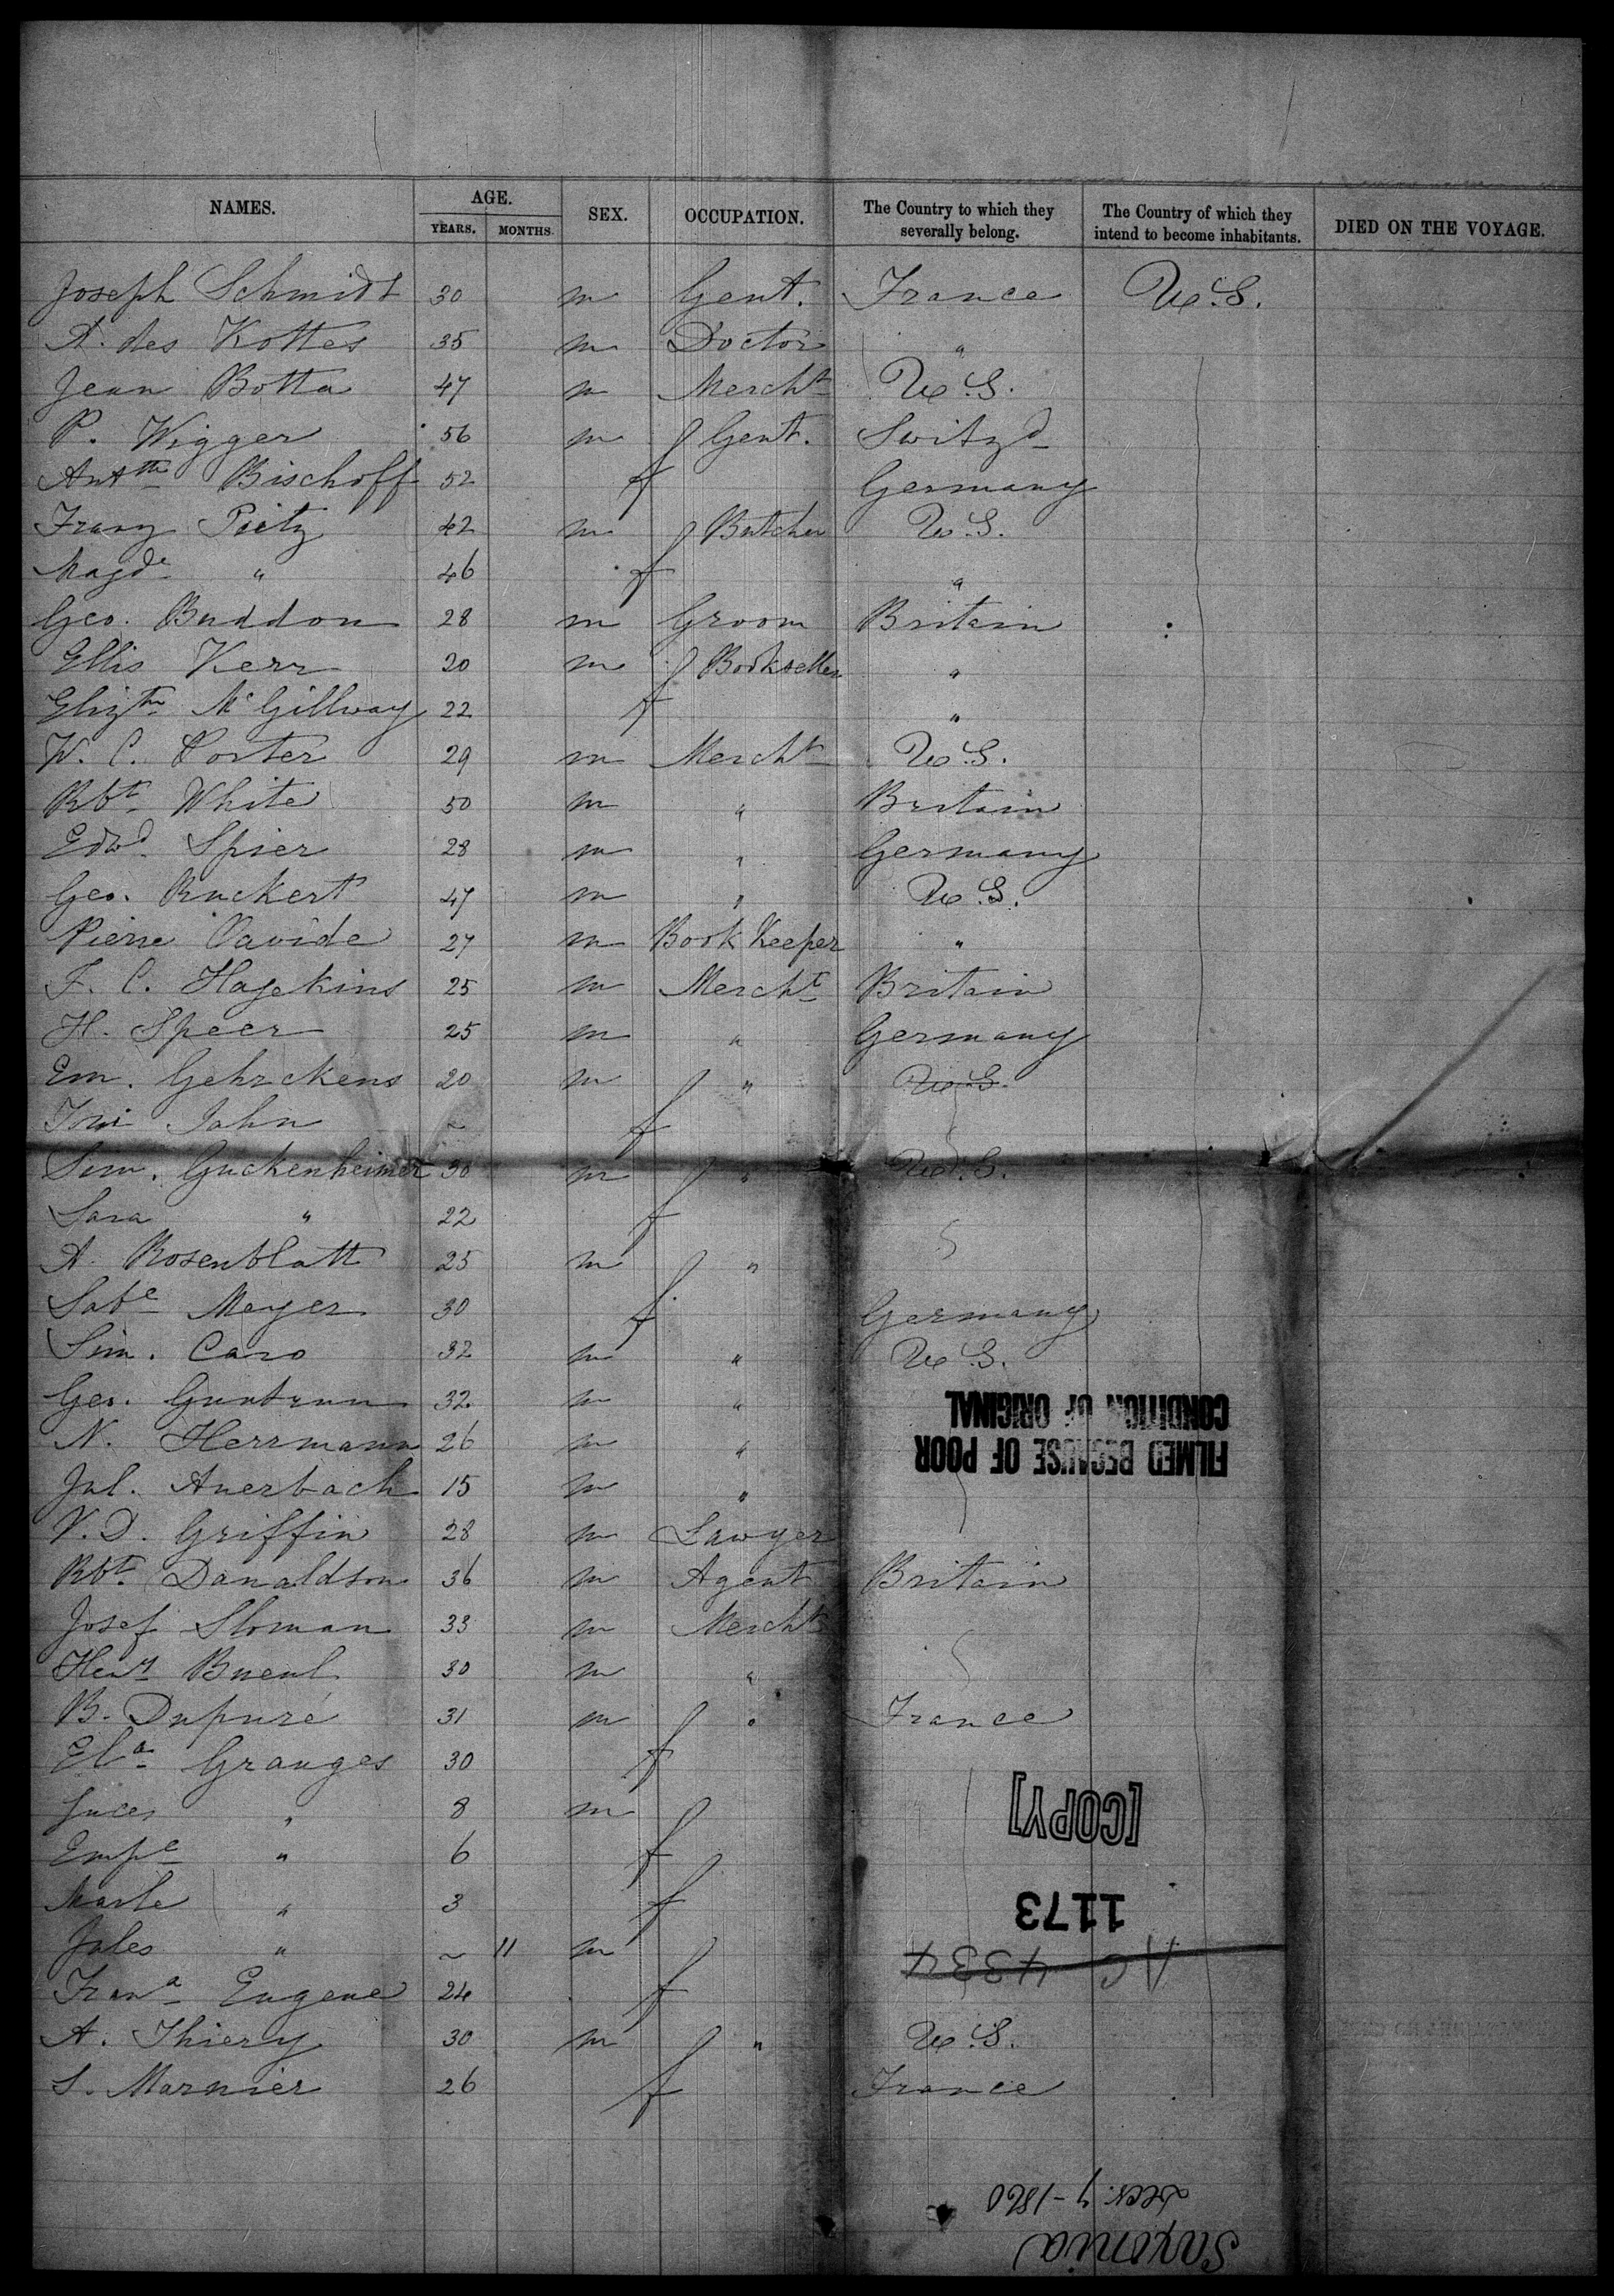 NAMES. AGE. YEARS. MONTHS. SEX. OCCUPATION. The Country to which they severally belong. The Country of which they intend to become inhabitants. DIED ON THE VOYAGE.
Joseph Schmidt 30 m Gent. France U.S.
A. des Kottes 35 m Doctor "
Jean Botta 47 m Mercht U.S.
P. Wigger 56 m Gent. Switzd
Antth Bischoff 52 f Germany
Franz Pietz 42 m Butcher U.S.
Magde " 46 f "
Geo. Buddon 28 m Groom Britain
Ellis Kerr 20 m Bookseller "
Elizth McGillway 22 f "
W. C. Porter 29 m Mercht U.S.
Rbt White 50 m " Britain
Edwd Spier 28 m " Germany
Geo. Ruckert 47 m " U.S.
Pierre Davide 27 m Book Keeper "
F. C. Hagekins 25 m Mercht Britain
H. Speer 25 m " Germany
Em. Gehrckens 20 m " U.S.
Jahn ~ f
Sim. Guckenheimer 30 m " U.S.
Sara " 22 f
A. Rosenblatt 25 m "
Sabe Meyer 30 f Germany
Sim. Caro 32 m " U.S.
Geo. Guntrum 32 m "
N. Herrmann 26 m "
Jul. Auerbach 15 m "
V. D. Griffin 28 m Lawyer
Rbt Donaldson 36 m Agent Britain
Josef Sloman 33 m Mercht
Heny 30 m "
B. Dupuré 31 m " France
Ela Granges 30 f
" 8 m
Empe " 6 f
Marle " 3 f
Jules " ~ 11 m
Frana Eugene 24 f
A. Thiery 30 m " U.S.
S. Marnier 26 f France
FILMED BECAUSE OF POOR
CONDITION OF ORIGINAL
[COPY]
1173
AC 4334
Saxonia
1860